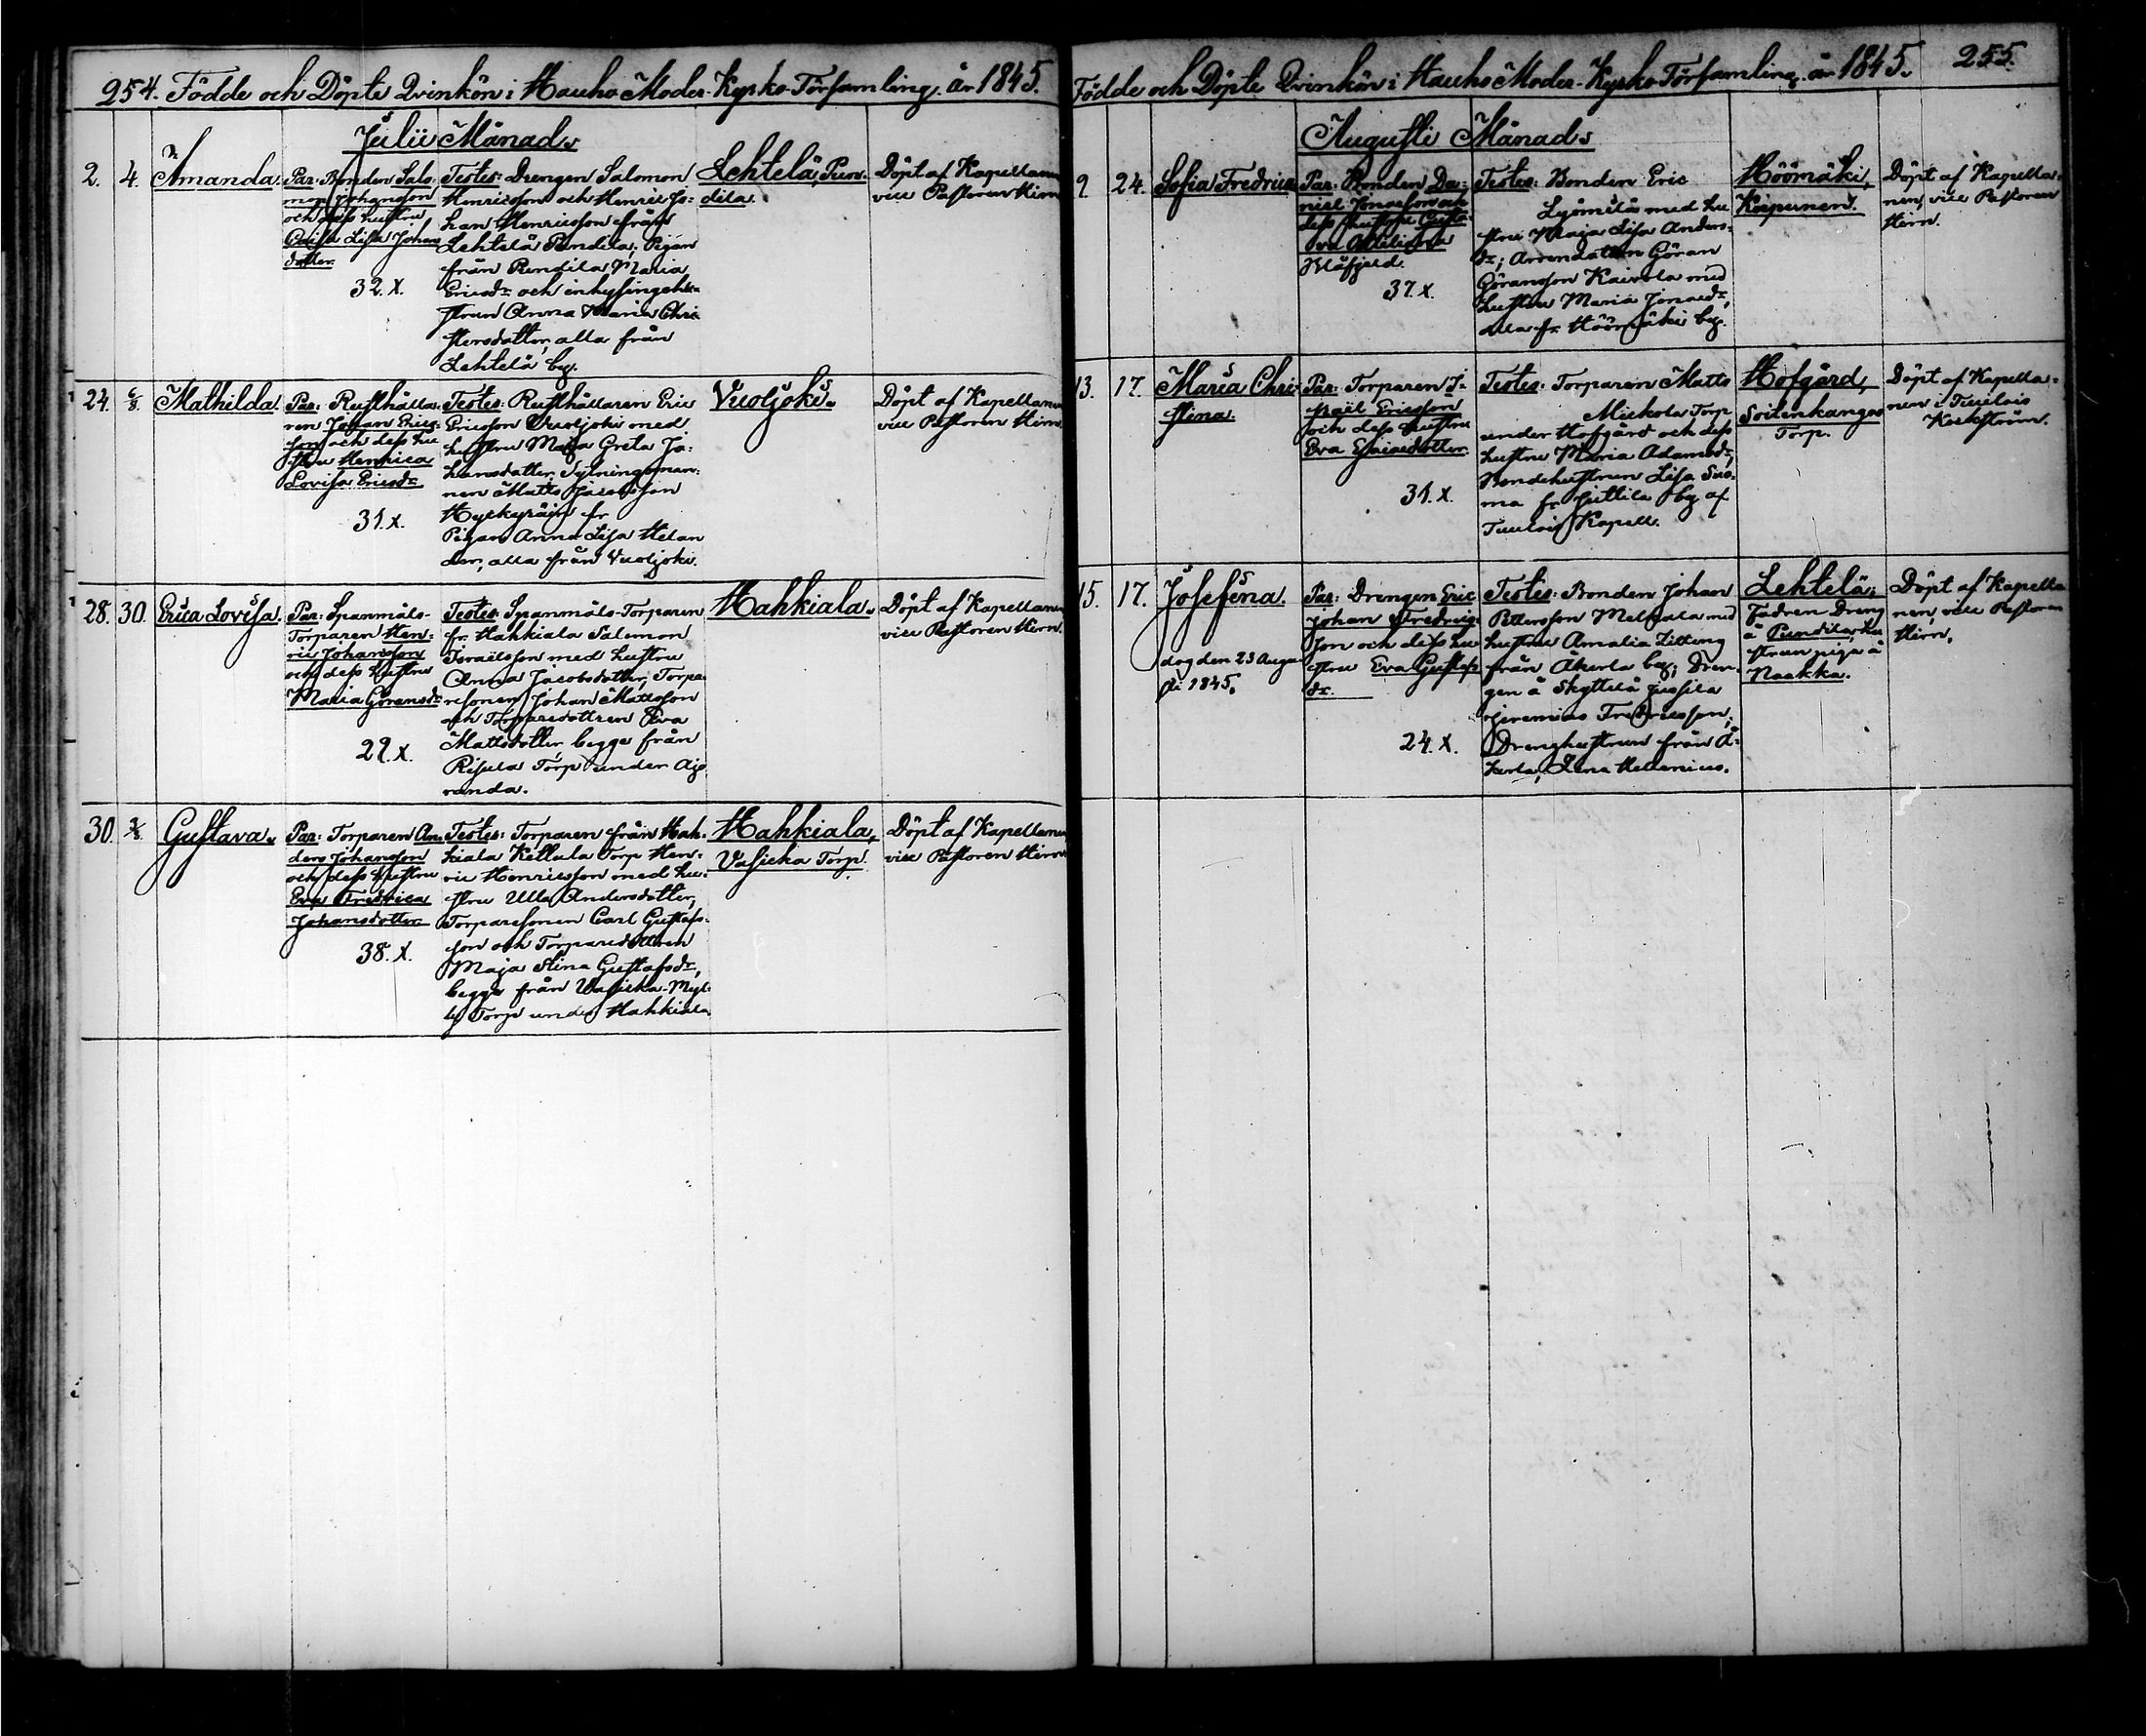 254. Födde och Döpte Qvinkön i Hauho Moder-Kyrko-Församling. år 1845.
Julii Månad.
2. 4. Amanda.
Par: Bonden Salo-
mon Johansson
och dess hustru
Caisa Lisa Johans
dotter.
32. X.
Testes: Drengen Salomon
Henricsson och Henric Jo-
han Henricsson från
Lehtelä Pundila; Pigan
från Pundila Maria
Ericsdr och inhysingehu-
strun Anna Maria Chri-
stersdotter, alla från
Lehtelä by.
Lehtelä, Pun-
dila.
Döpt af Kapellanen
vice Pastoren Hirn
24. 6/8. Mathilda.
Par: Rusthålla-
ren Johan Erics-
son och dess hu
stru Henrica
Lovisa Ericsdr
31. X.
Testes: Rusthållaren Eric
Ericsson Vuoljoki med
hustru Maja Greta Jo-
hansdotter, Sytningsman-
nen Matts Jacobsson
fr
Pigan Anna Lisa Helan
der, alla från Vuoljoki.
Vuoljoki.
Döpt af Kapellanen
vice Pastoren Hirn.
28. 30. Erica Lovisa.
Par: Spanmåls-
Torparen Hen-
ric Johansson
och dess hustru
Maria Göransdr
29. X.
Testes: Spanmåls-Torparen
fr. Hahkiala Salomon
Israëlsson med hustru
Anna Jacobsdotter, Torpa-
resonen Johan Mattsson
och Torparedottren Eva
Mattsdotter, begge från
Risula Torp under Ajo
randa.
Hahkiala.
Döpt af Kapellanen
vice Pastoren Hirn.
30. 3/8. Gustava.
Par: Torparen An-
ders Johansson
och dess hustru
Eva Fredrica
Johansdotter.
38. X.
Testes: Torparen från Hah-
kiala Kellula Torp Hen-
ric Henricsson med hu-
stru Ulla Andersdotter,
Torparesonen Carl Gustafs-
son och Torparedottren
Maja Stina Gustafsdr,
begge från Vasicka-Myl-
ly Torp under Hahkiala
Hahkiala,
Vasicka Torp.
Döpt af Kapellanen
vice Pastoren Hirn
Födde och Döpte Qvinkön i Hauho Moder-Kyrko-Församling. år 1845. 255.
Augusti Månad.
9. 24. Sofia Fredrica
Par: Bonden Da-
niel Jonasson och
dess hustru Gusta-
va
Blåfjeld.
37. X.
Testes: Bonden Eric
med hu
stru Maja Lisa Anders-
dr; Arrendatorn Göran
Göransson Kaivola med
hustru Maria Jonaedr,
alla fr. Höömäki by.
Höömäki,
Döpt af Kapella-
nen, vice Pastoren
Hirn.
13. 17. Maria Chri-
stina.
Par: Torparen I-
sraël Ericsson
och dess hustru
Eva Esaiaedotter.
31. X.
Testes: Torparen Matts
Mickola Torp
under Hofgård och dess
hustru Maria Adamsdr,
Bondehustrun Lisa Suo-
ma fr. Juttila by af
Tuulois Kapell.
Hofgård,
Soitenkangas
Torp.
Döpt af Kapella-
nen i Tuulois
15. 17. Josefina.
dog den 23 Augu
sti 1845.
Par: Drengen Eric
Johan Fredrics-
son och dess hu
stru Eva Gustafs
dr.
24. X.
Testes: Bonden Johan
Pettersson med
hustru Amalia Litting
från Akerla by; Dren-
gen å Skyttelä Jussila
Jeremias Fredricsson;
Drenghustrun från A-
kerla, Lena Hellenius.
Lehtelä;
Fadren Dreng
å Pundila, hu
strun piga å
Naakka.
Döpt af Kapella
nen, vice Pastoren
Hirn.